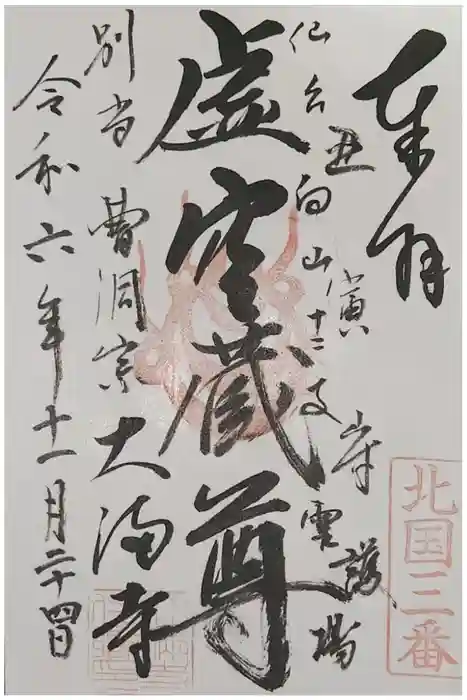 奉拝
北国三番
丑寅守護
仙台向山十二支霊場
虚空蔵尊
別当 曹洞宗 大満寺
令和六年十一月二十四日